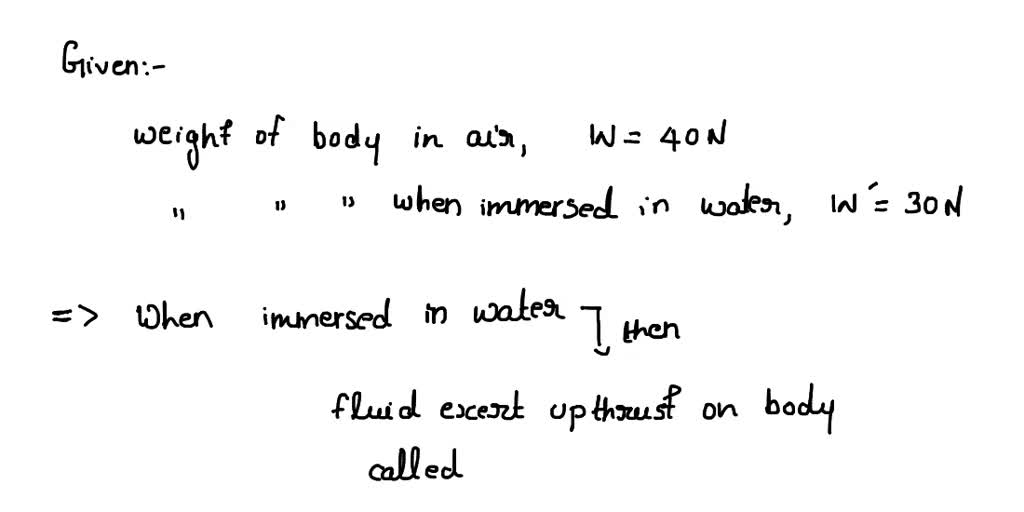 Given:-
weight of body in air, W = 40N
" " " when immersed in water, W' = 30N
=> When immersed in water then
fluid excert upthrust on body
called